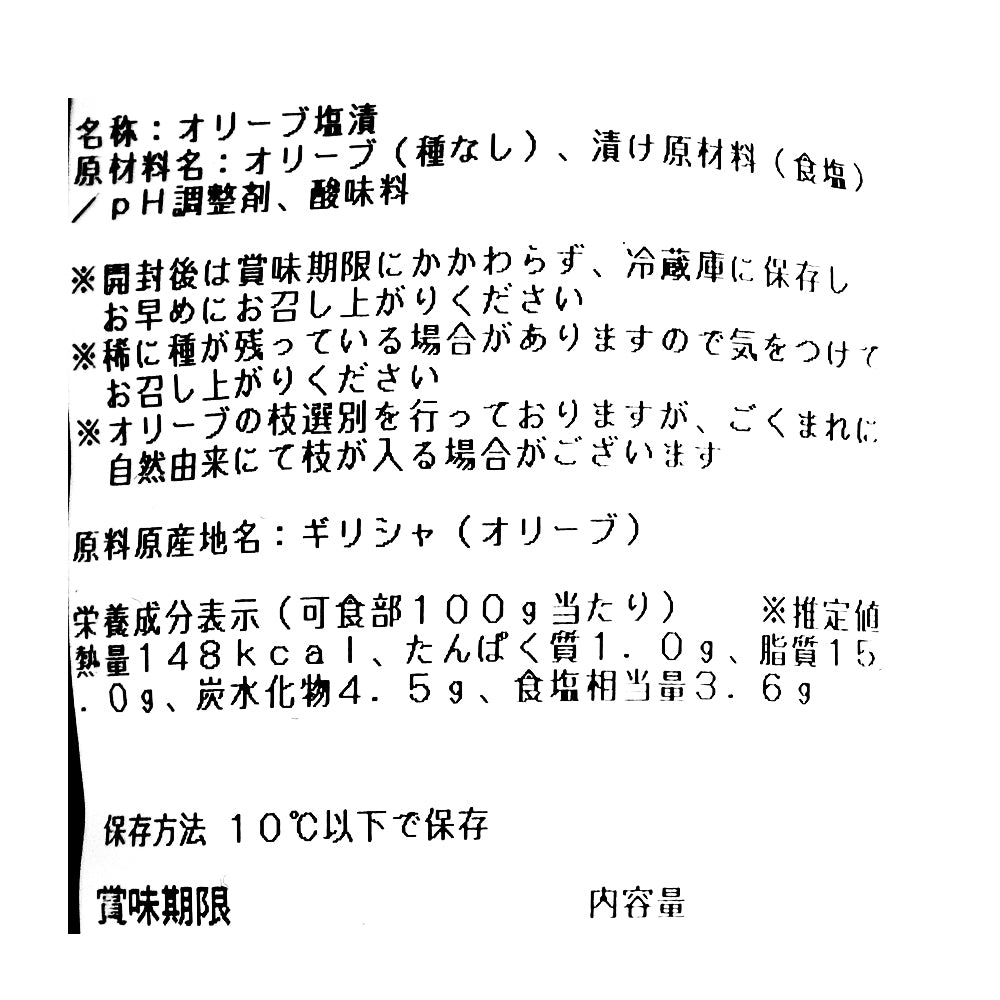 名称：オリーブ塩漬
原材料名：オリーブ（種なし）、漬け原材料（食塩）
／ｐＨ調整剤、酸味料
※開封後は賞味期限にかかわらず、冷蔵庫に保存し
お早めにお召し上がりください
※稀に種が残っている場合がありますので気をつけて
お召し上がりください
※オリーブの枝選別を行っておりますが、ごくまれに
自然由来にて枝が入る場合がございます
原料原産地名：ギリシャ（オリーブ）
栄養成分表示（可食部１００ｇ当たり）　※推定値
熱量１４８ｋｃａｌ、たんぱく質１．０ｇ、脂質１５
．０ｇ、炭水化物４．５ｇ、食塩相当量３．６ｇ
保存方法 １０℃以下で保存
賞味期限　内容量